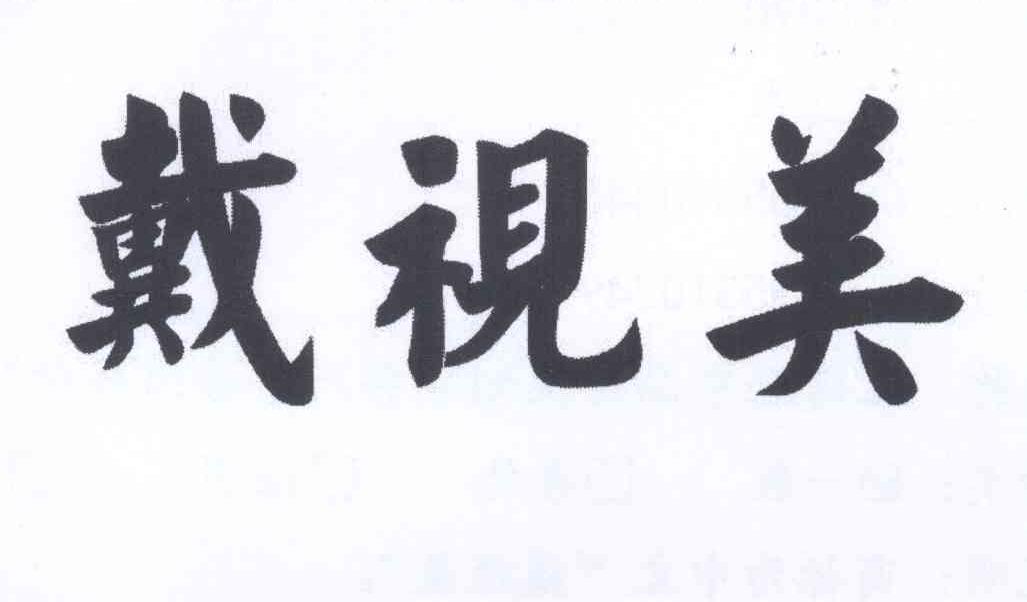 戴視美